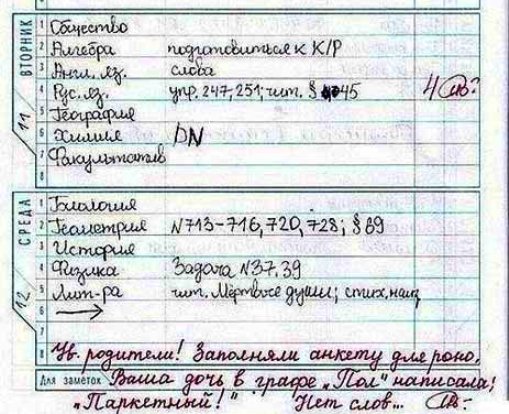 ВТОРНИК
11
1 Общество
2 Алгебра подготовиться к К/Р
3 Англ. яз. слова
4 Рус. яз. упр. 247, 251; чит. § 45 4
5 География
6 Химия DN
7 Факультатив
8
СРЕДА
12
1 Биология
2 Геометрия N713-716, 720, 728; § 69
3 История
4 Физика Задача N37, 39
5 Лит-ра чит. Мёртвые души; стих. наиз
6 →
7
8 Ув. родители! Заполняли анкету для роно.
Для заметок Ваша дочь в графе „Пол" написала:
„Паркетный!" Нет слов...